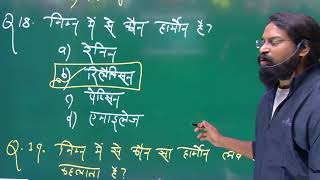 Q 18. निम्न में से कौन हार्मोन है?
a) रेनिन
b) रिलैक्सिन
c) पेप्सिन
d) एमाइलेज
Q. 19. निम्न में से कौन सा हार्मोन
कहलाता है?